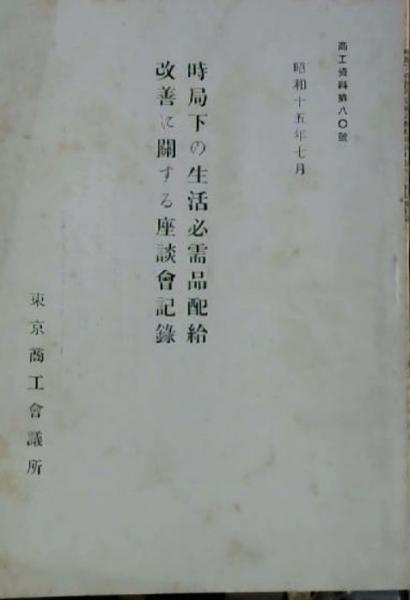 商工資料第八〇號
昭和十五年七月
時局下の生活必需品配給
改善に關する座談會記錄
東京商工會議所